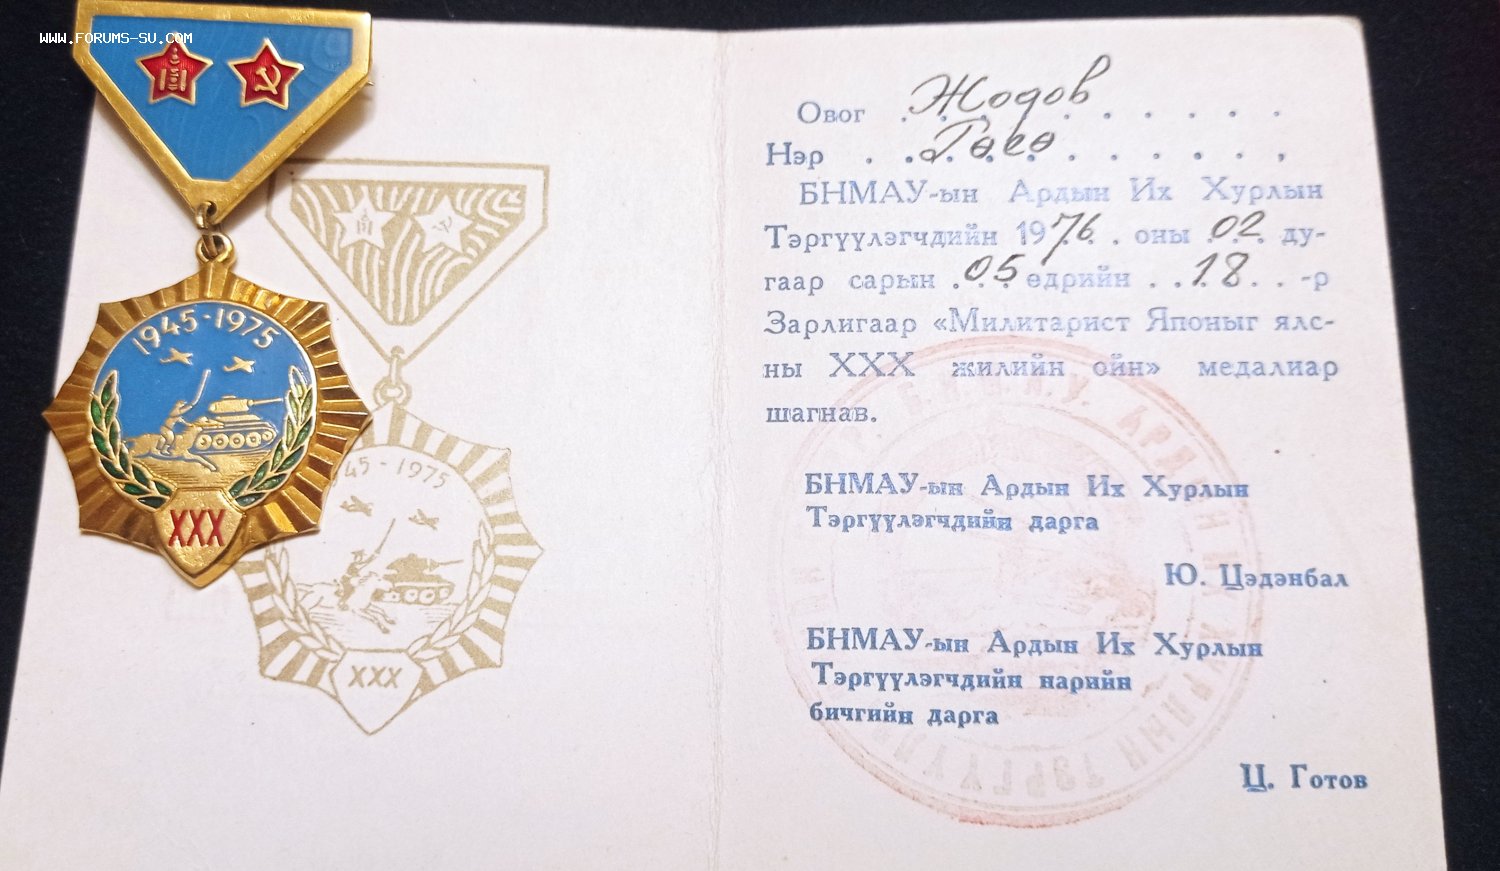 www.FORUMS-SU.COM
1945-1975
XXX
1945-1975
XXX
Овог . Жодов . . . . .
Нэр . . . . . . . . . .
БНМАУ-ын Ардын Их Хурлын
Тэргүүлэгчдийн 1976 . оны 02 ду-
гаар сарын 05 өдрийн 18 -р
Зарлигаар «Милитарист Японыг ялс-
ны XXX жилийн ойн» медалиар
шагнав.
БНМАУ-ын Ардын Их Хурлын
Тэргүүлэгчдийн дарга
Ю. Цэдэнбал
БНМАУ-ын Ардын Их Хурлын
Тэргүүлэгчдийн нарийн
бичгийн дарга
Ц. Готов